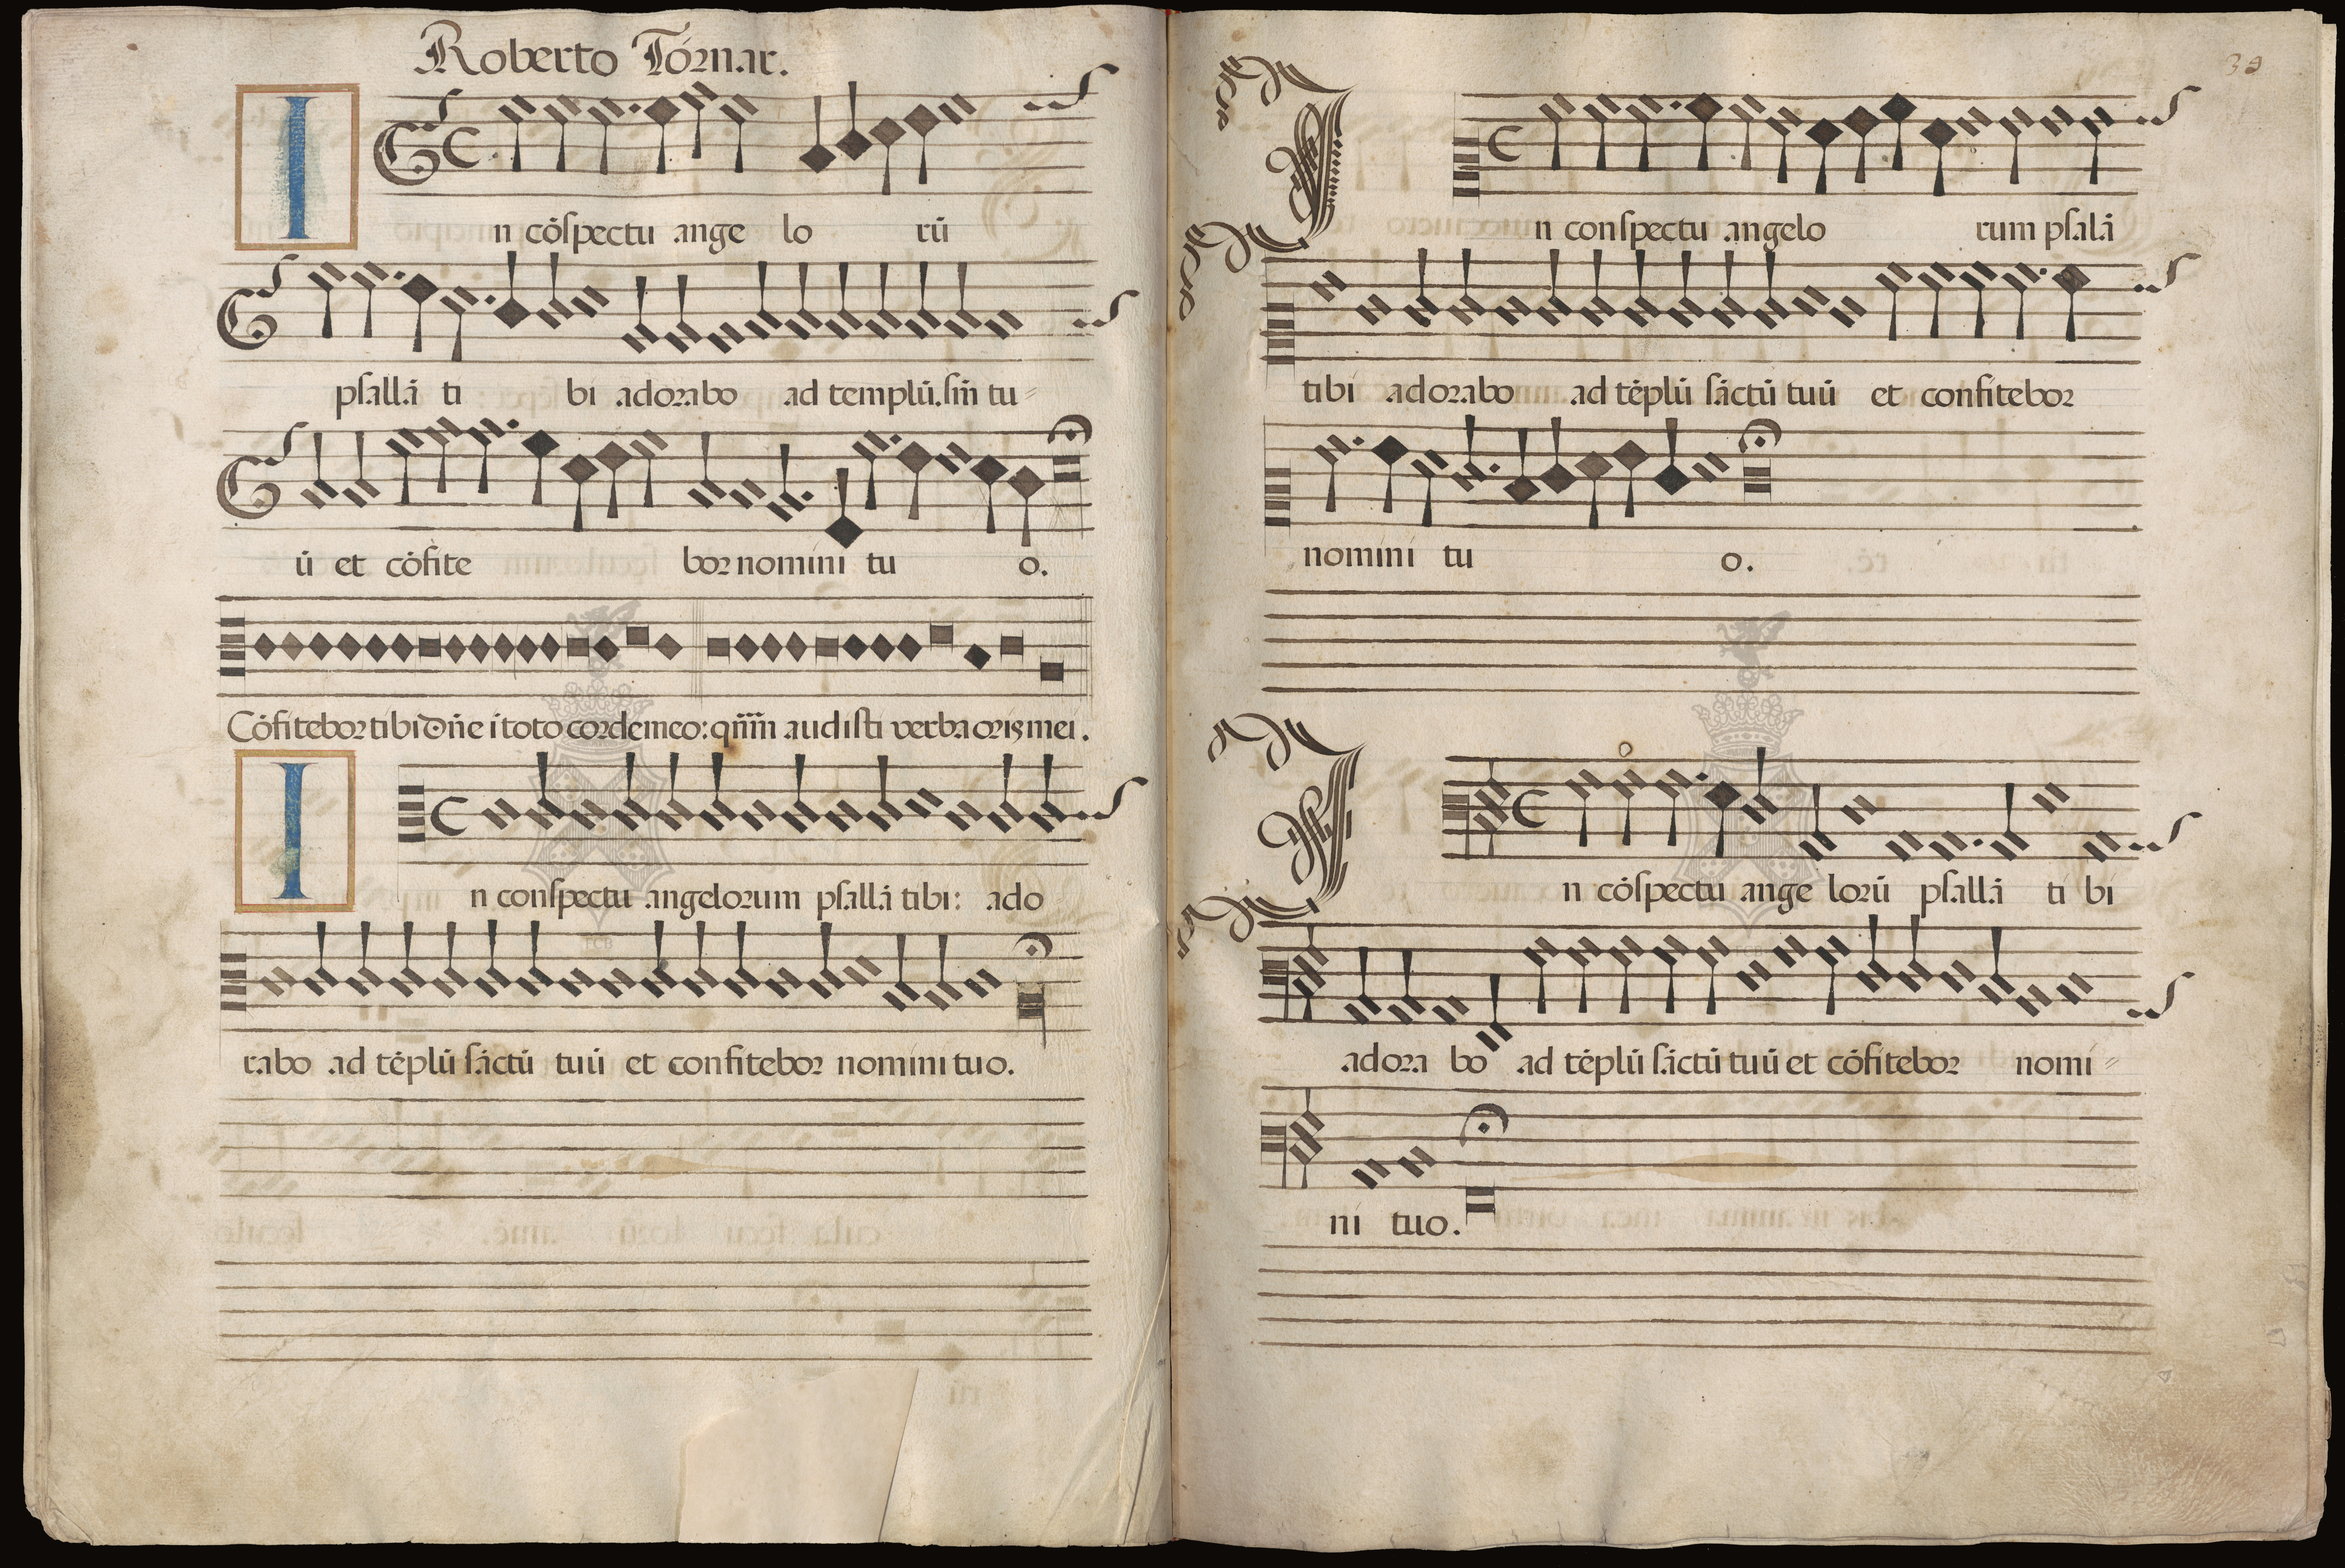 Roberto Tornar.
I
n cōſpectu ange lo rū
pſallā ti bi adorabo ad templū.ſm̄ tu⸗
ū et cōfite bor nomini tu o.
Cōfitebor tibi Dn̄e ī toto corde meo: qm̄ audiſti verba oris mei.
I
n conſpectu angelorum pſallā tibi: ado
rabo ad tēplū ſāctū tuū et confitebor nomini tuo.
39
I
n conſpectu angelo rum pſalā
tibi adorabo ad tēplū ſāctū tuū et confitebor
nomini tu o.
I
n cōſpectu ange lorū pſallā ti bi
adora bo ad tēplū ſāctū tuū et cōfitebor nomi⸗
ni tuo.